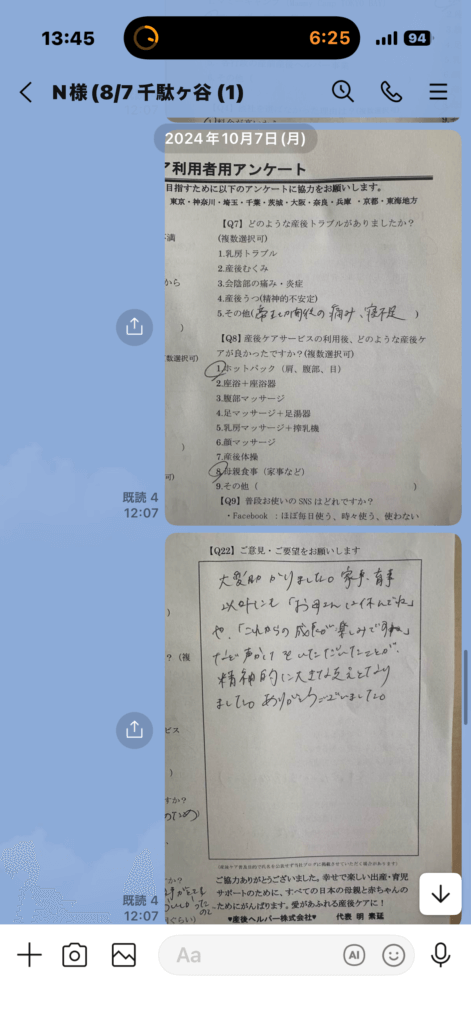 13:45
6:25
94
N様 (8/7 千駄ヶ谷 (1)
2024年10月7日(月)
利用者用アンケート
目指すために以下のアンケートに協力をお願いします。
東京・神奈川・埼玉・千葉・茨城・大阪・奈良・兵庫・京都・東海地方
【Q7】どのような産後トラブルがありましたか?
(複数選択可)
1.乳房トラブル
2.産後むくみ
3.会陰部の痛み・炎症
から
4.産後うつ(精神的不安定)
5.その他( の痛み、寝不足 )
)
【Q8】産後ケアサービスの利用後、どのような産後ケ
数選択可)
アが良かったですか?(複数選択可)
1.ホットパック(肩、腹部、目)
2.座浴+座浴器
3.腹部マッサージ
4.足マッサージ+足湯器
5.乳房マッサージ+搾乳機
)
6.顔マッサージ
7.産後体操
可)
8.母親食事(家事など)
9.その他( )
【Q9】普段お使いのSNSはどれですか?
・Facebook :ほぼ毎日使う、時々使う、使わない
既読 4
12:07
【Q22】ご意見・ご要望をお願いします
大変助かりました。家事、育事
以外にも「お母さんは休んでね」
や、「これからの成長が楽しみですね」
など声かけをいただいたことが、
精神的に大きな支えとなり
ました。ありがとうございました。
)
?(複
ビス
)
すか?
のため)
か?
ご協力ありがとうございました。幸せで楽しい出産・育児
サポートのために、すべての日本の母親と赤ちゃんの
ためにがんばります。愛があふれる産後ケアに!
ぐらい)
♥産後ヘルパー株式会社♥ 代表 明 素延
既読 4
12:07
Aa
AI